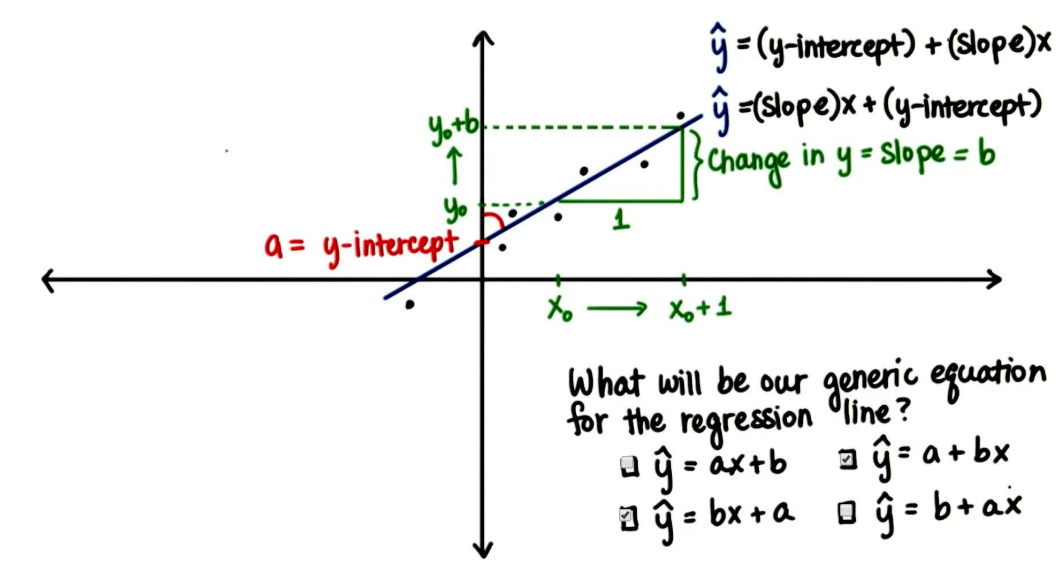 ŷ = (y-intercept) + (slope)x
ŷ = (slope)x + (y-intercept)
y₀+b
Change in y = slope = b
y₀
1
a = y-intercept
x₀ → x₀+1
What will be our generic equation
for the regression line?
ŷ = ax+b
ŷ = a + bx
ŷ = bx + a
ŷ = b + ax